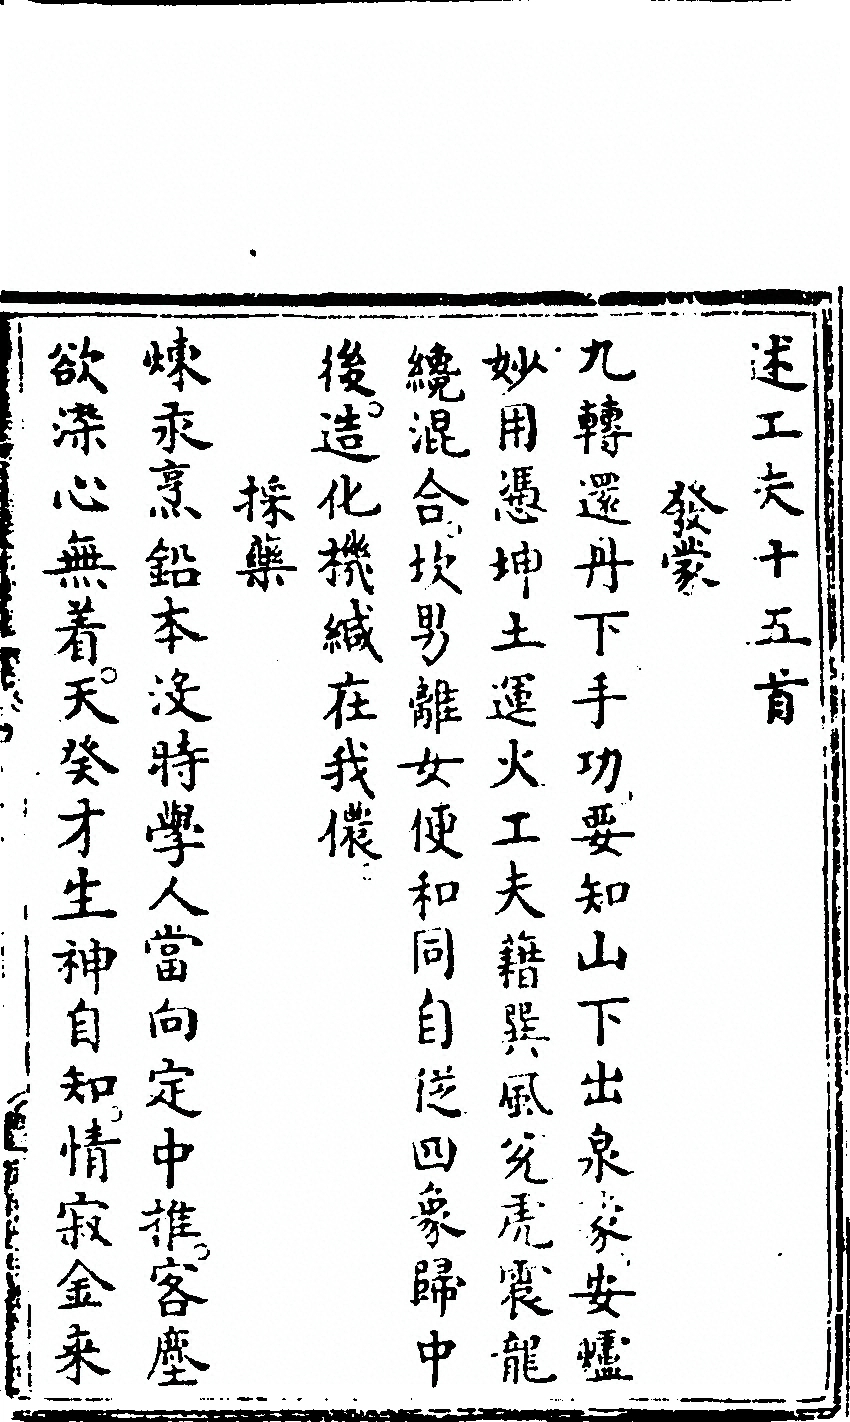 述工夫十五首
發蒙
九轉還丹下手功要知山下出泉蒙安爐
妙用憑坤土運火工夫藉巽風兌虎震龍
纔混合坎男離女便和同自從四象歸中
後造化機緘在我儂
採藥
煉汞烹鉛本没時學人當向定中推客塵
欲染心無着天癸才生神自知情寂金來